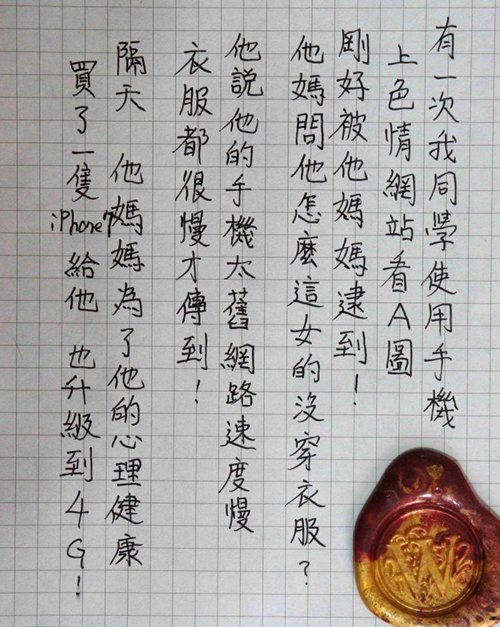 有一次我同學使用手機
上色情網站看A圖
剛好被他媽媽逮到！
他媽問他怎麼這女的沒穿衣服？
他說他的手機太舊網路速度慢
衣服都很慢才傳到！
隔天 他媽媽為了他的心理健康
買了一隻iPhone7給他 也升級到4G！
W